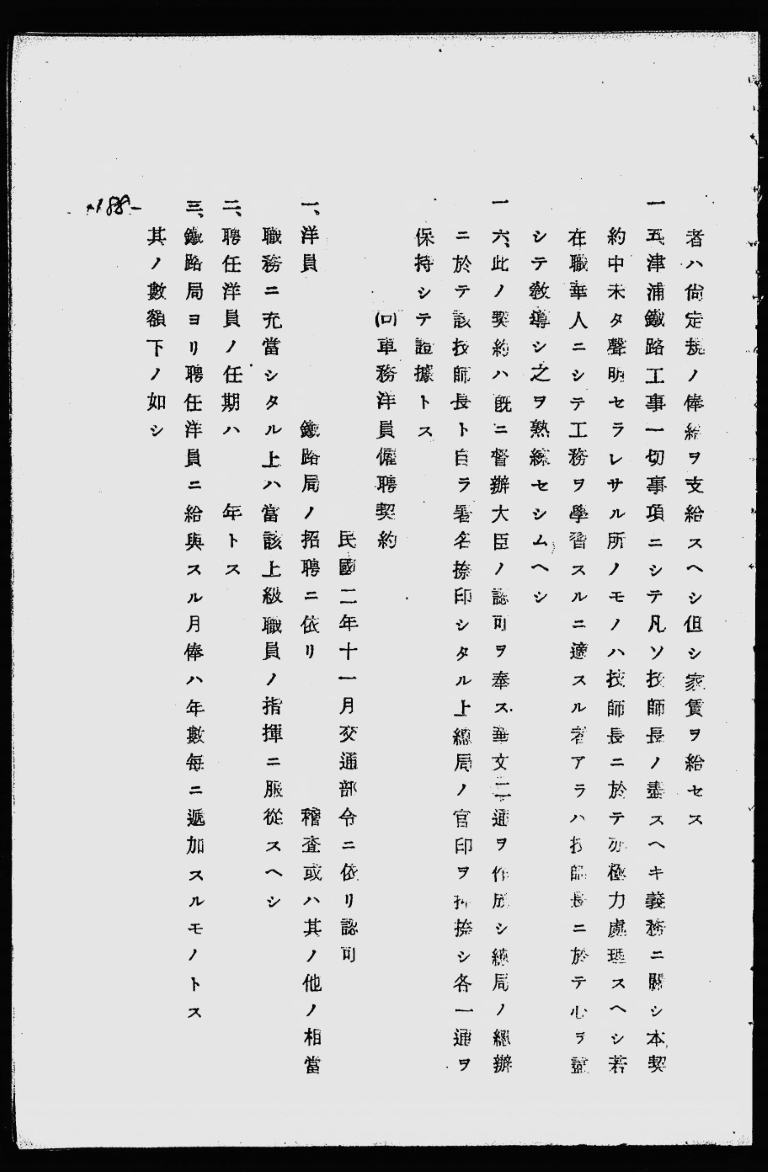 者ハ尙定規ノ俸給ヲ支給スヘシ但シ家賃ヲ給セス
一五、津浦鐵路工事一切事項ニシテ凡ソ技師長ノ盡スヘキ義務ニ關シ本契
約中未タ聲明セラレサル所ノモノハ技師長ニ於テ亦極力處理スヘシ若
在職華人ニシテ工務ヲ學習スルニ適スル者アラハ技師長ニ於テ心ヲ盡
シテ敎導シ之ヲ熟練セシムヘシ
一六、此ノ契約ハ既ニ督辦大臣ノ認可ヲ奉ス華文二通ヲ作成シ總局ノ總辦
ニ於テ該技師長ト自ラ署名捺印シタル上總局ノ官印ヲ押捺シ各一通ヲ
保持シテ證據トス
(ロ)車務洋員僱聘契約
民國二年十一月交通部令ニ依リ認可
一、洋員 鐵路局ノ招聘ニ依リ 稽査或ハ其ノ他ノ相當
職務ニ充當シタル上ハ當該上級職員ノ指揮ニ服從スヘシ
二、聘任洋員ノ任期ハ 年トス
三、鐵路局ヨリ聘任洋員ニ給與スル月俸ハ年數每ニ遞加スルモノトス
其ノ數額下ノ如シ
188-